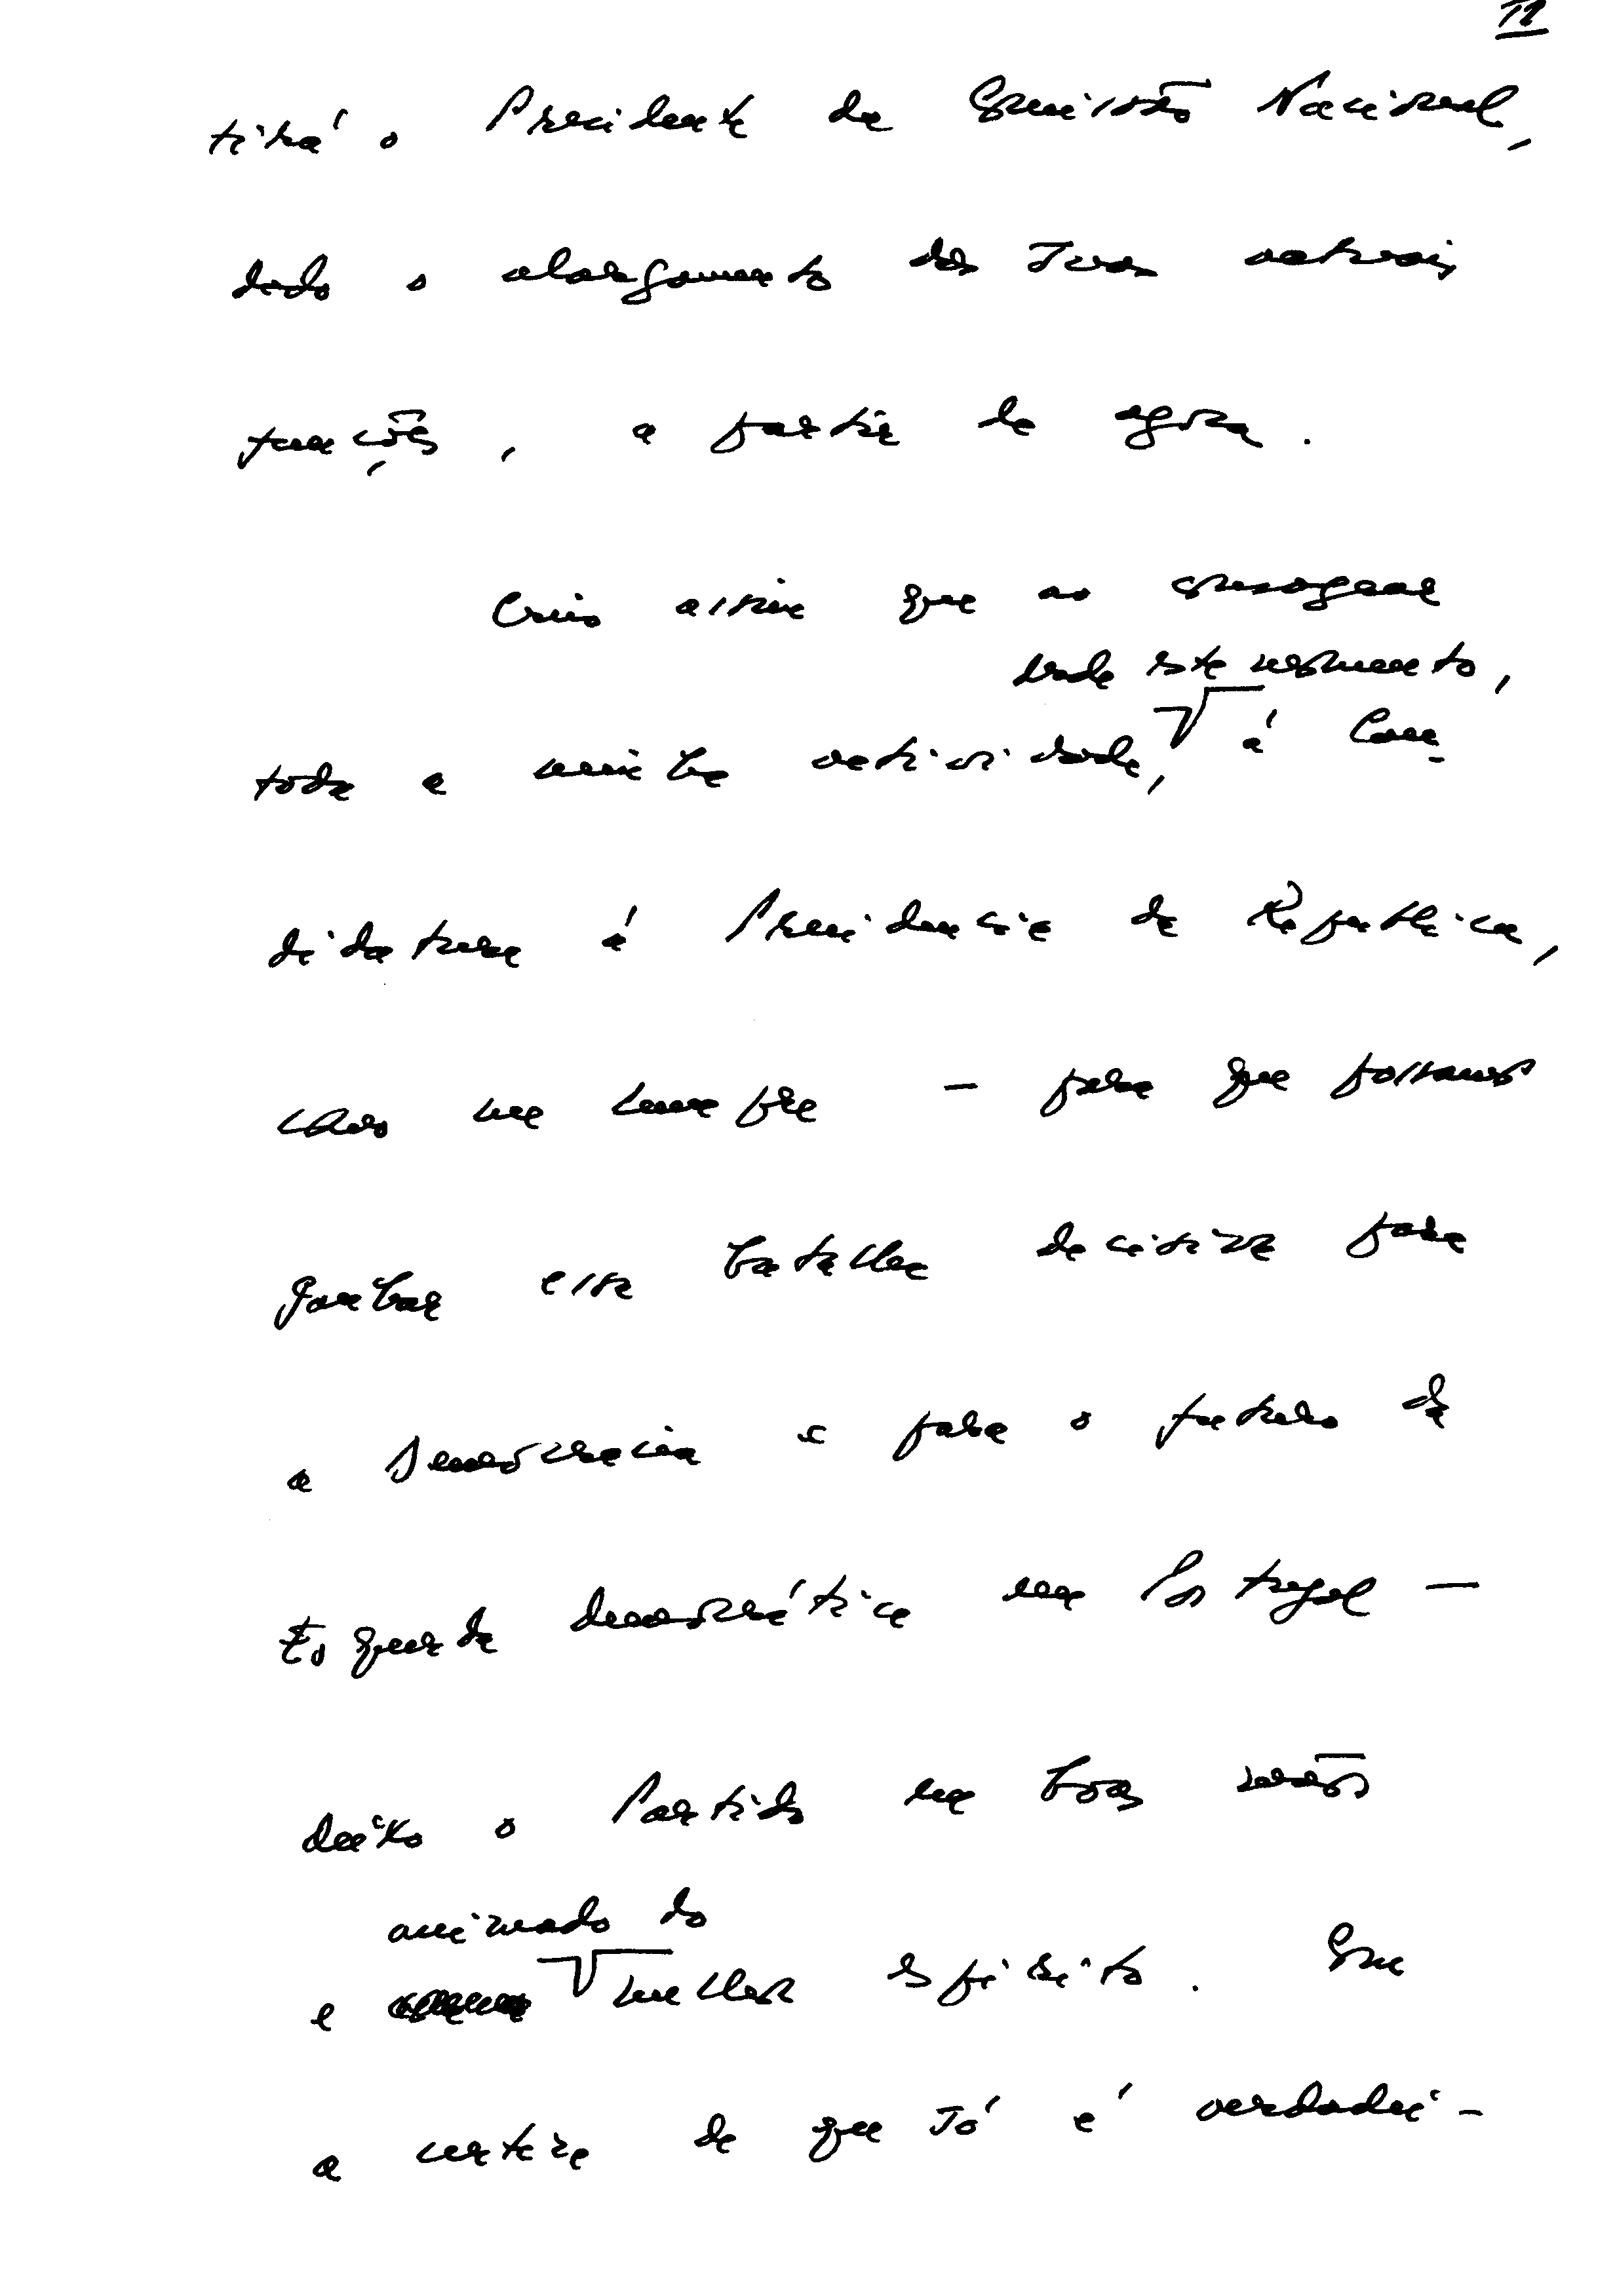 11
tirá o Presidente da Comissão Nacional,
dado o alargamento das suas actuais
funções, a partir de agora.
Creio assim que ao consagrar
desde este momento,
toda a minha actividade, à Can-
didatura à Presidência da República,
como me cumpre — para que possamos
ganhar essa batalha decisiva para
a Democracia e para o futuro da
Esquerda democrática em Portugal —
deixo o Partido em boas mãos
animado do
e melhor espírito. Com
a certeza de que só é verdadei-